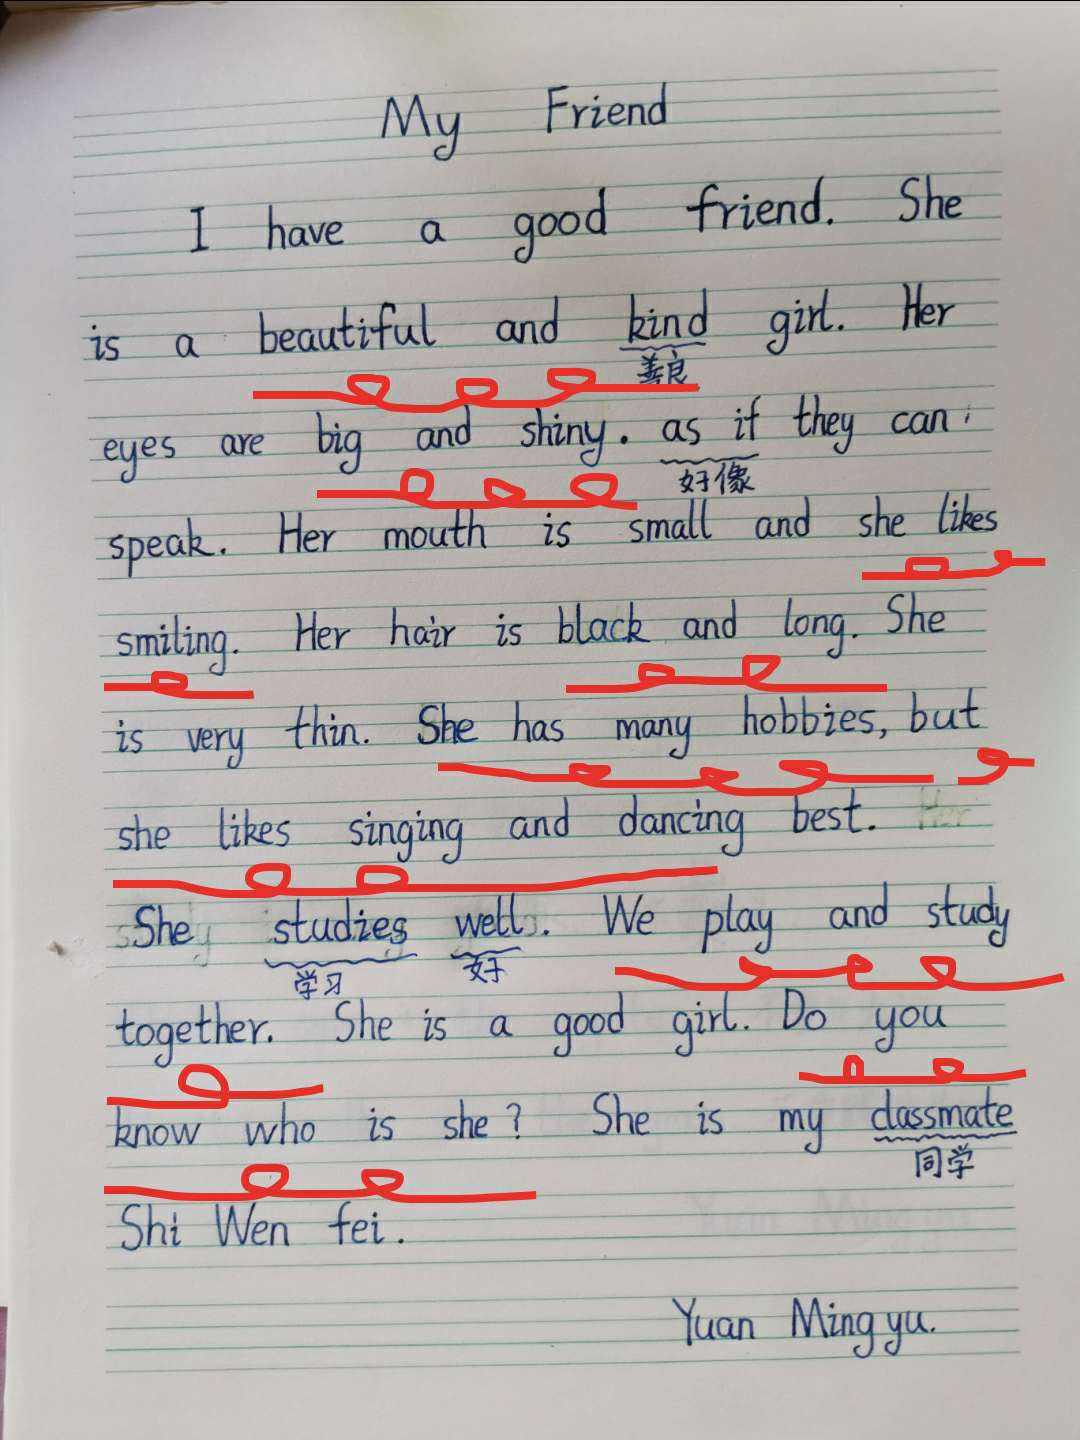 My Friend
I have a good friend. She
is a beautiful and kind girl. Her
善良
eyes are big and shiny. as if they can
好像
speak. Her mouth is small and she likes
smiling. Her hair is black and long. She
is very thin. She has many hobbies, but
she likes singing and dancing best. Her
She studies well. We play and study
学习 好
together. She is a good girl. Do you
know who is she? She is my classmate
同学
Shi Wen fei.
Yuan Ming yu.